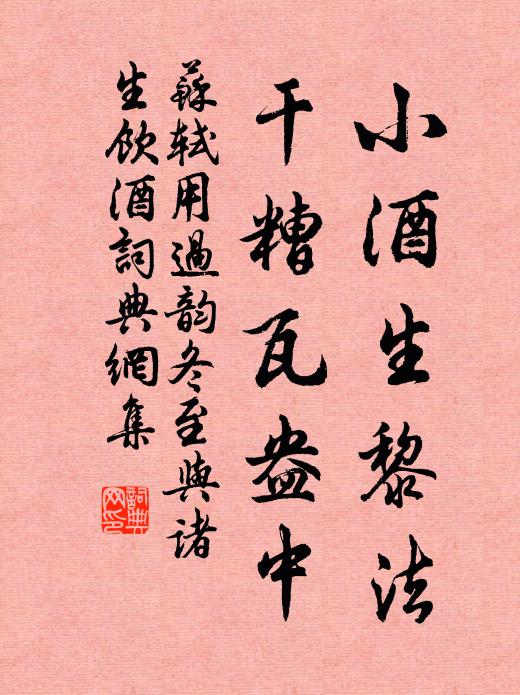 小酒生黎法
干糟瓦盎中
蘇軾用過韵冬至與諸
生飲酒詞典網集
詞典
网印